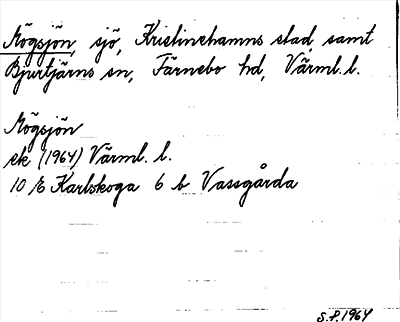 Mögsjön, sjö, Kristinehamns stad, samt
Bjurtjärns sn, Färnebo hd, Värml. l.
Mögsjön
ek (1964) Värml. l.
10 E Karlskoga 6 b Vassgårda
S.P. 1964